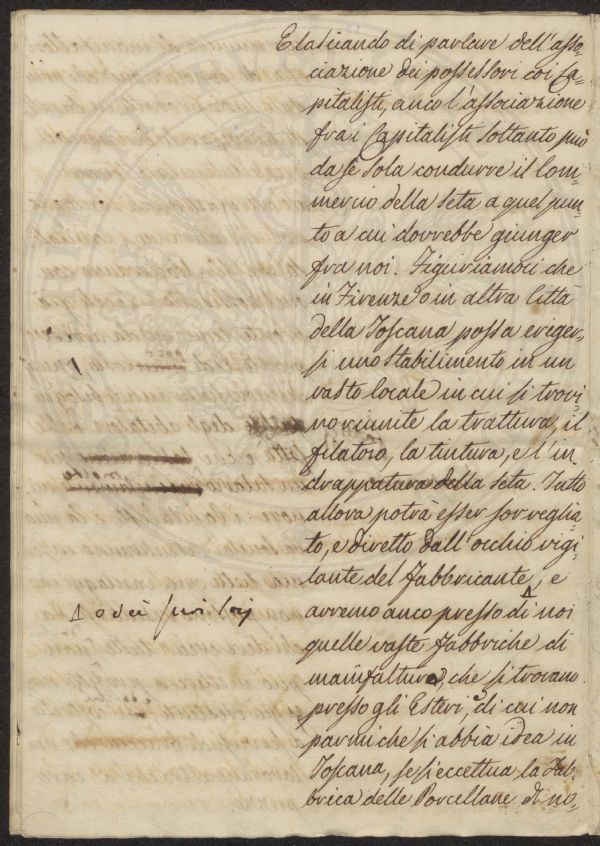 E lasciando di parlare dell'asso=
ciazione dei possessori coi Ca=
pitalisti, anco l'associazione
fra i Capitalisti soltanto può
da se sola condurre il Com=
mercio della seta a quel pun=
to a cui dovrebbe giunger
fra noi. Figuriamoci che
in Firenze o in altra Città
della Toscana possa eriger=
si uno stabilimento in un
vasto locale in cui si trovi=
no riunite la trattura, il
filatoio, la tintura, e l'in
drappatura della seta. Tutto
allora potrà esser sorveglia=
to, e diretto dall'occhio vigi=
lante del Fabbricante, e
o dei suoi
avremo anco presso di noi
quelle vaste Fabbriche di
manifatture, che si trovano
presso gli Esteri, e di cui non
parmi che si abbia idea in
Toscana, se si eccettua la Fab=
brica delle Porcellane di no=